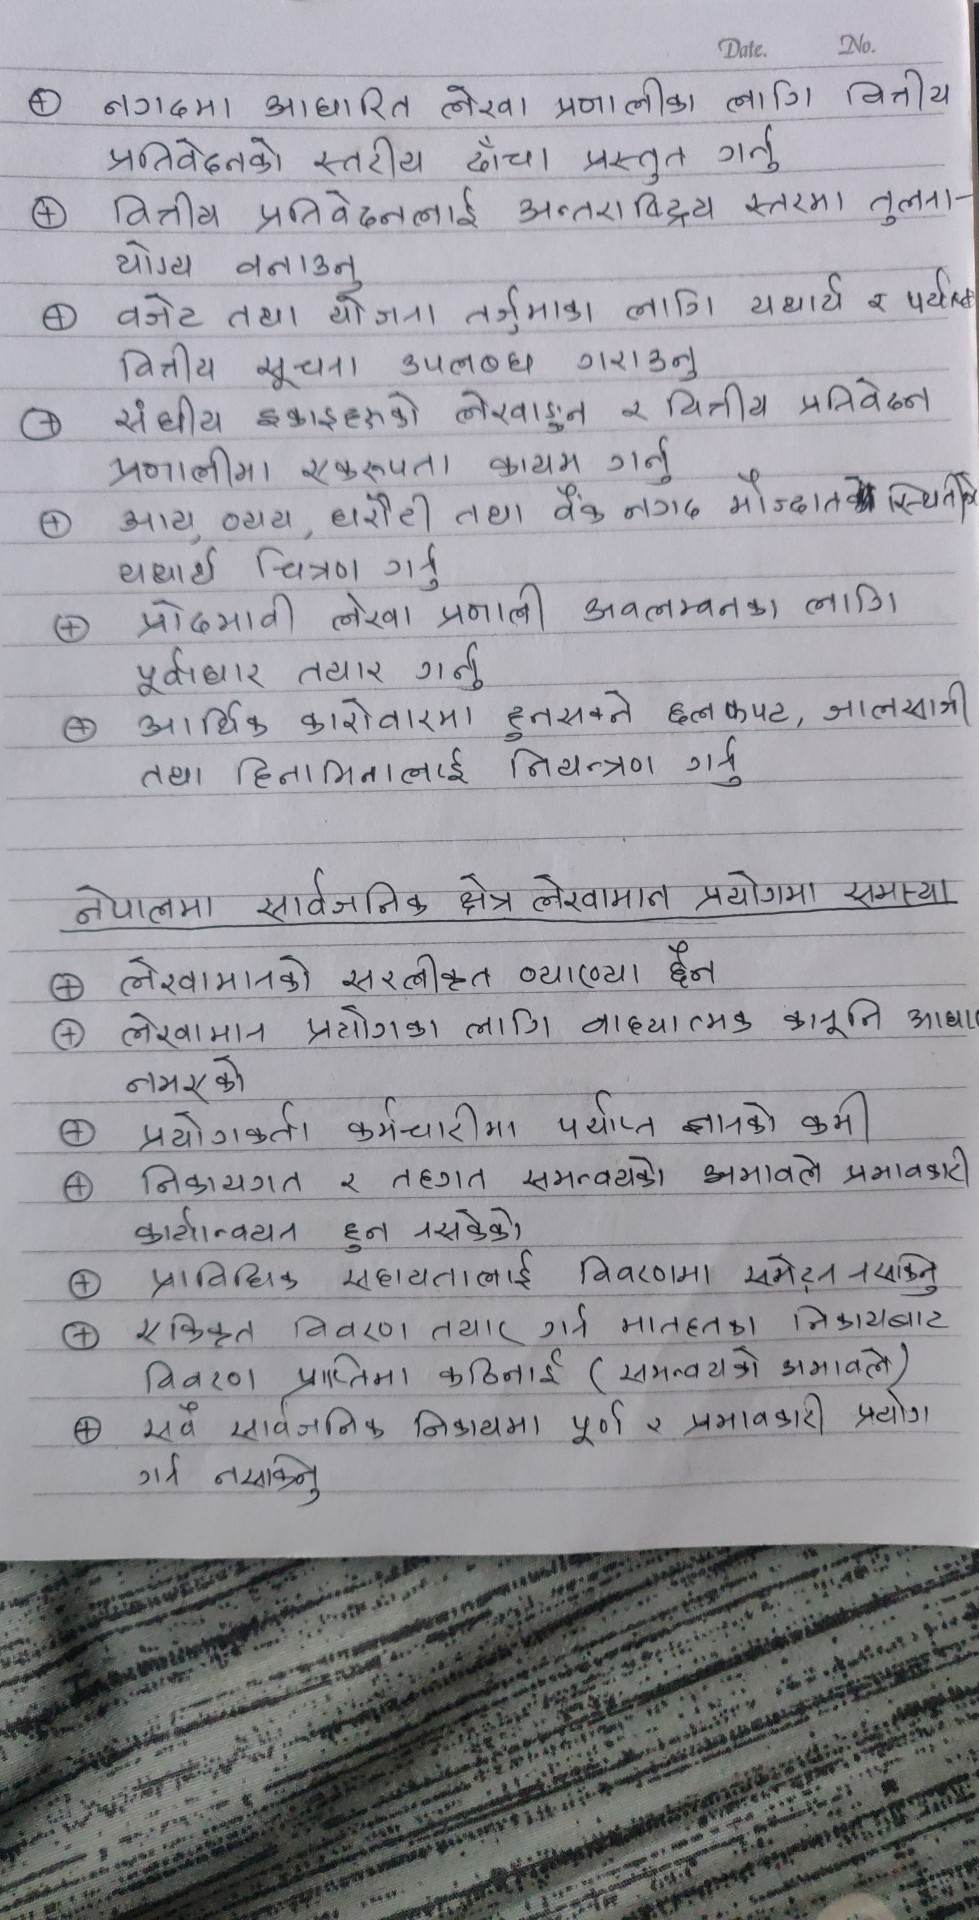 Date. No.
⊕ नगदमा आधारित लेखा प्रणालीका लागि वित्तीय
प्रतिवेदनको स्तरीय ढाँचा प्रस्तुत गर्नु
⊕ वित्तीय प्रतिवेदनलाई अन्तराष्ट्रिय स्तरमा तुलना-
योग्य बनाउनु
⊕ बजेट तथा योजना तर्जुमाका लागि यथार्थ र पर्याप्त
वित्तीय सूचना उपलब्ध गराउनु
⊕ संघीय इकाइहरूको लेखाङ्कन र वित्तीय प्रतिवेदन
प्रणालीमा एकरूपता कायम गर्नु
⊕ आय, व्यय, धरौटी तथा बैंक नगद मौज्दात स्थितिको
यथार्थ चित्रण गर्नु
⊕ प्रोदभावी लेखा प्रणाली अवलम्बनका लागि
पूर्वाधार तयार गर्नु
⊕ आर्थिक कारोवारमा हुनसक्ने छलकपट, जालसाजी
तथा हिनामिनालाई नियन्त्रण गर्नु
नेपालमा सार्वजनिक क्षेत्र लेखामान प्रयोगमा समस्या
⊕ लेखामानको सरलीकृत व्याख्या छैन
⊕ लेखामान प्रयोगका लागि वाध्यात्मक कानूनि आधार
नभएको
⊕ प्रयोगकर्ता कर्मचारीमा पर्याप्त ज्ञानको कमी
⊕ निकायगत र तहगत समन्वयको अभावले प्रभावकारी
कार्यान्वयन हुन नसकेको
⊕ प्राविधिक सहायतालाई विवरणमा समेट्न नसकिनु
⊕ एकिकृत विवरण तयार गर्न मातहतका निकायबाट
विवरण प्राप्तिमा कठिनाई (समन्वयको अभावले)
⊕ सवै सार्वजनिक निकायमा पूर्ण र प्रभावकारी प्रयोग
गर्न नसकिनु